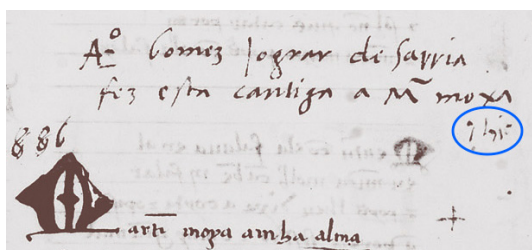 Aº Gomez jograr de Sarria
fez esta cantiga a Mᵐ moxa
886
Martī moxa a mha alma